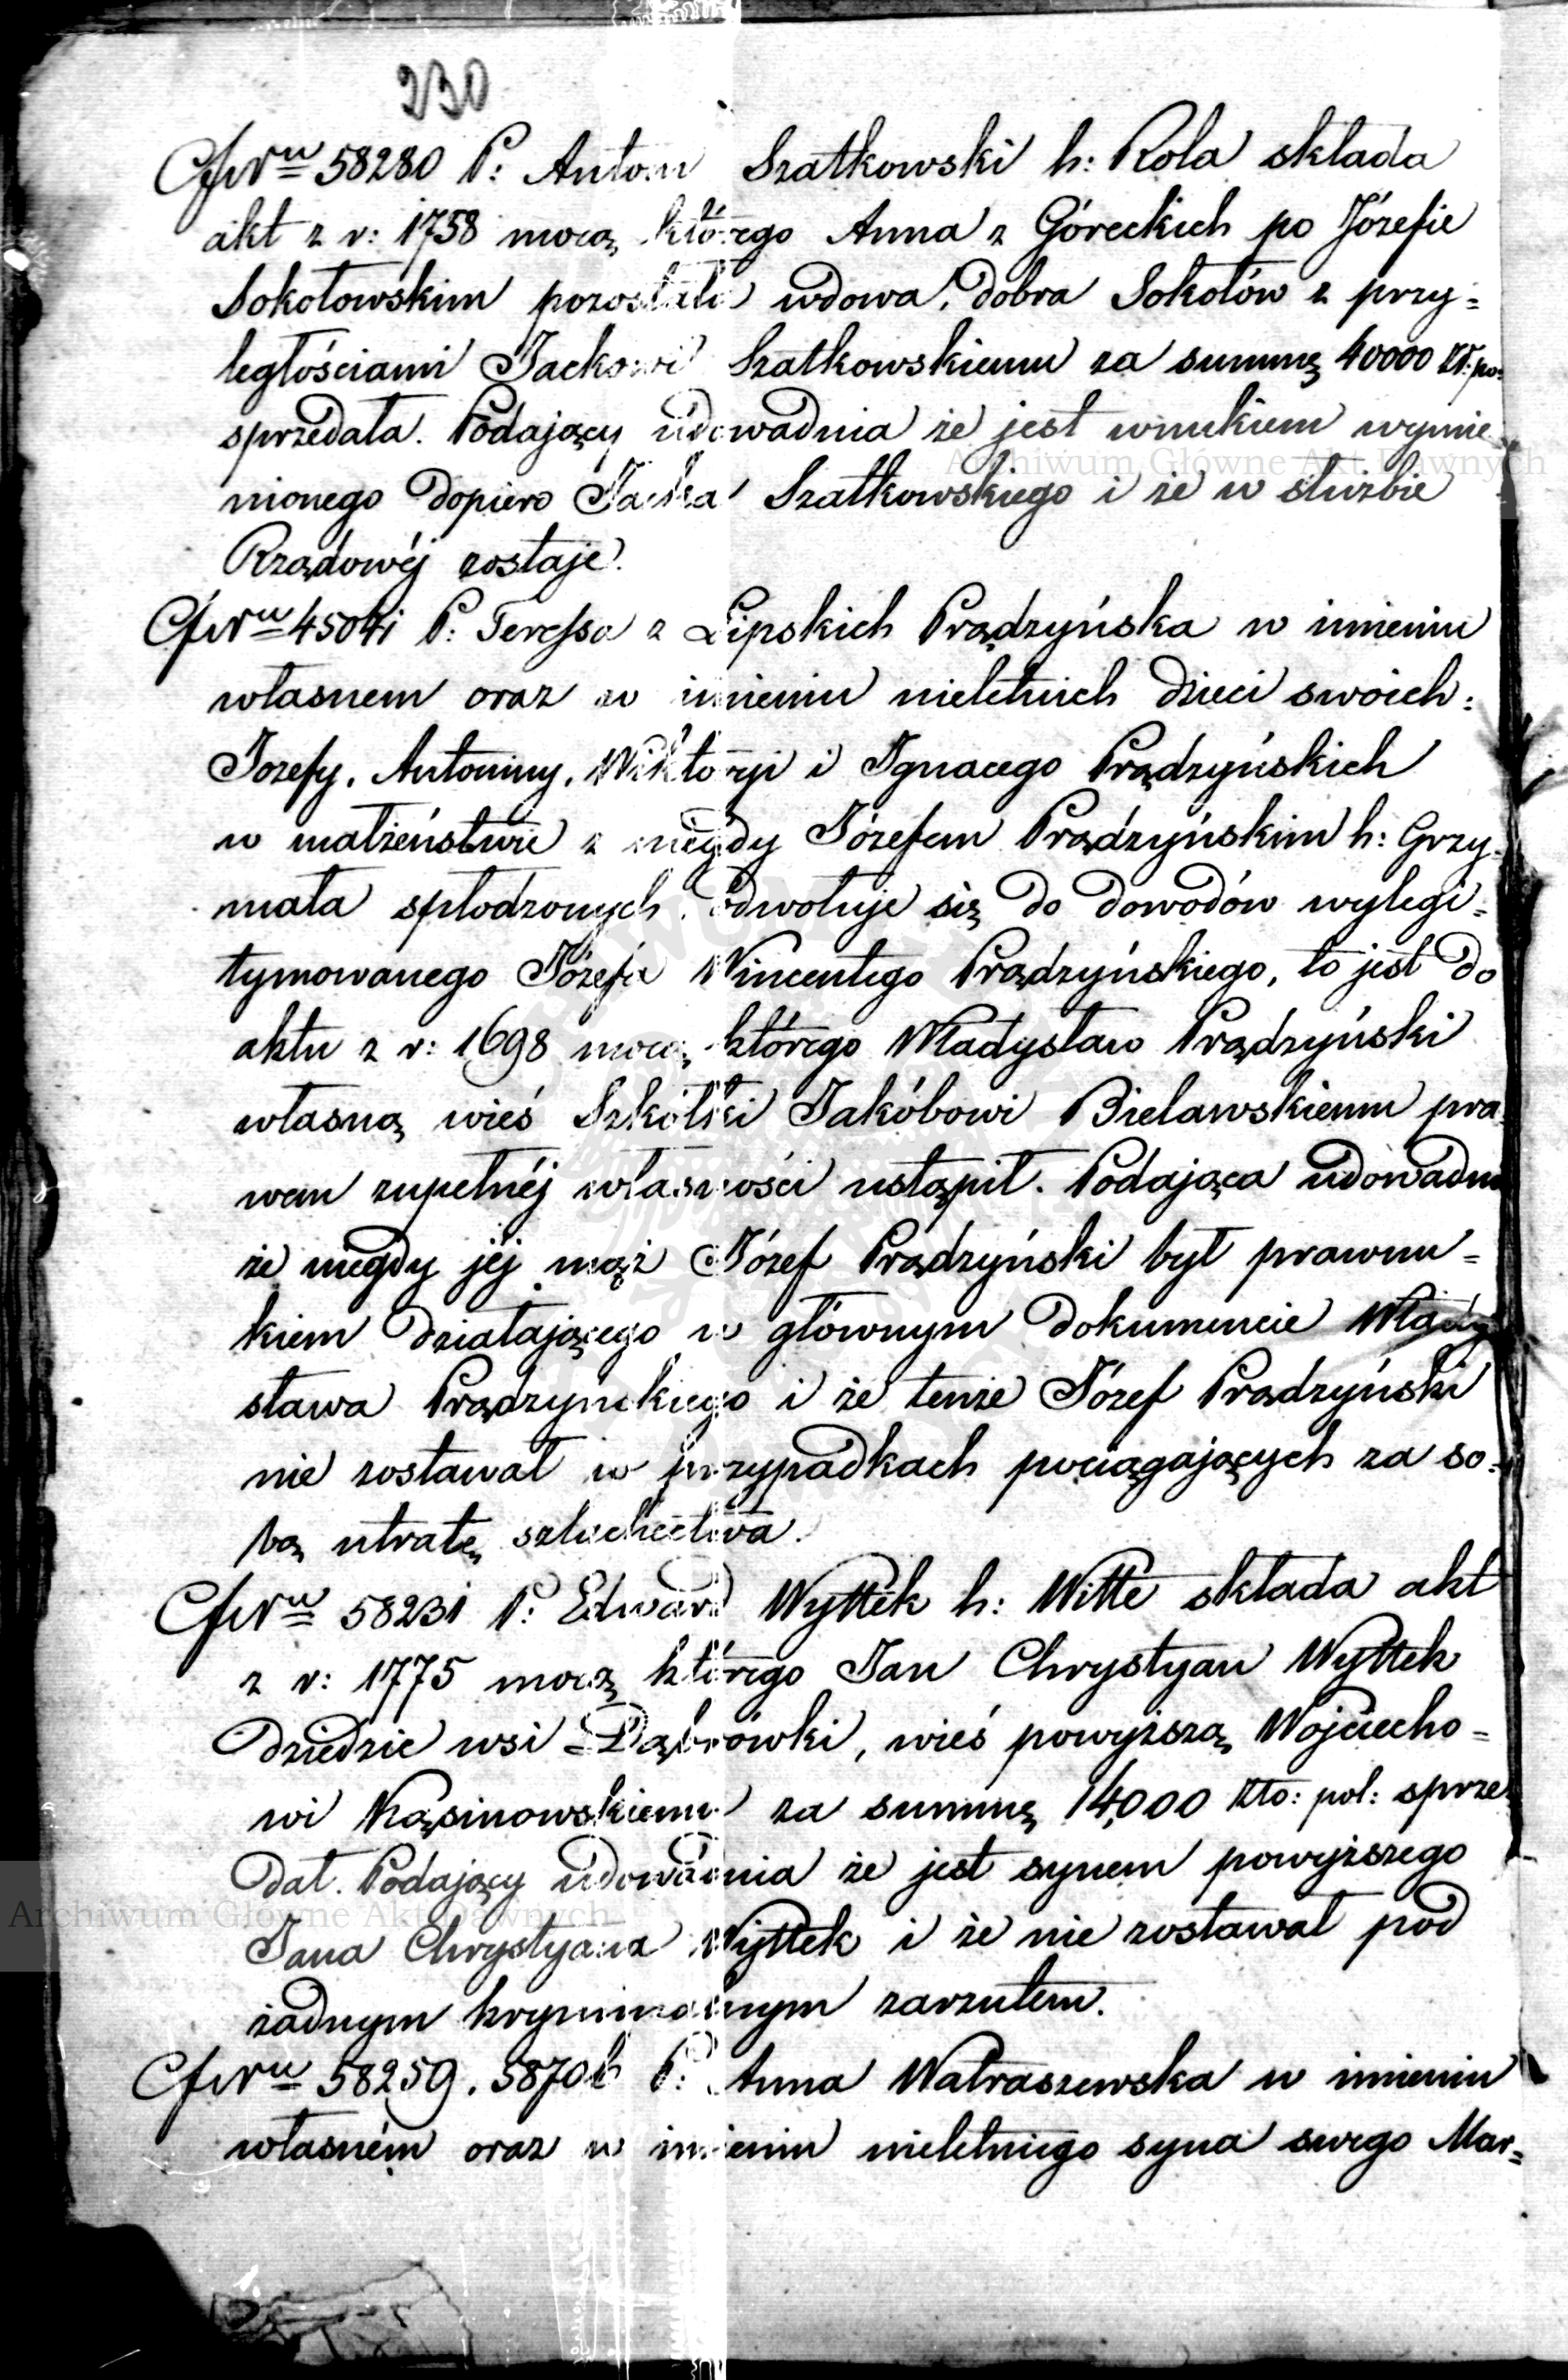 230
Cf Nru 58280 P: Antoni Szatkowski h: Rola składa
akt z r: 1758 mocą którego Anna z Góreckich po Józefie
Sokołowskim pozostała wdowa, dobra Sokołów z przy=
ległościami Jackowi Szatkowskiemu za summę 40000 zł: po:
sprzedała. Podający udowadnia że jest wnukiem wymie
nionego dopiero Jacka Szatkowskiego i że w służbie
Rządowéj zostaje.
Cf Nru 45041 P: Teressa z Lipskich Prądzyńska w imieniu
własnem oraz w imieniu nieletnich dzieci swoich:
Jozefy, Antoniny, Wiktoryi i Ignacego Prądzyńskich
w małżeństwie z niegdy Józefem Prądzyńskim h: Grzy=
mała spłodzonych, odwołuje się do dowodów wylegi=
tymowanego Józefa Wincentego Prądzyńskiego, to jest do
aktu z r: 1698 mocą którego Władysław Prądzyński
własną wieś Szkółki Jakóbowi Bielawskiemu pra
wem zupełnéj własności ustąpił. Podająca udowadnia
że niegdy jéj mąż Józef Prądzyński był prawnu=
kiem działającego w głównym dokumencie Włady
sława Prądzyńskiego i że tenże Józef Prądzyński
nie zostawał w przypadkach pociągających za so=
bą utratę szlachectwa.
Cf Nru 58231 P: Edward Wyttek h: Witte składa akt
z r: 1775 mocą którego Jan Chrystyan Wyttek
dziedzic wsi Dąbrówki, wieś powyższą Wojciecho=
wi Kąsinowskiemu za summę 14,000 złto: pol: sprze
dał. Podający udowadnia że jest synem powyższego
Jana Chrystyana Wyttek i że nie zostawał pod
żadnym kryminalnym zarzutem.
Cf Nru 58259. 58706 P: Anna Watraszewska w imieniu
własném oraz w imieniu nieletniego syna swego Mar=
Archiwum Główne Akt Dawnych
Archiwum Główne Akt Dawnych